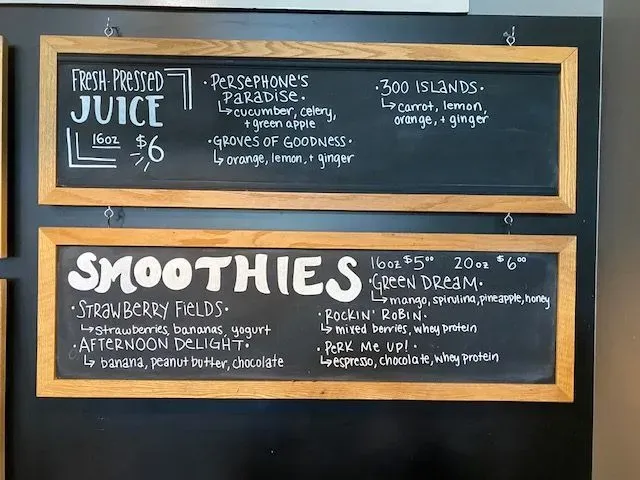 FRESH-PRESSED
JUICE
16oz $6
·PERSEPHONE'S
PARADISE·
↳cucumber, celery,
+ green apple
·GROVES OF GOODNESS·
↳orange, lemon, + ginger
·300 ISLANDS·
↳carrot, lemon,
orange, + ginger
SMOOTHIES
16oz $5⁰⁰ 20oz $6⁰⁰
·STRAWBERRY FIELDS·
↳strawberries, bananas, yogurt
·AFTERNOON DELIGHT·
↳banana, peanut butter, chocolate
·GREEN DREAM·
↳mango, spirulina, pineapple, honey
·ROCKIN' ROBIN·
↳mixed berries, whey protein
·PERK ME UP!·
↳espresso, chocolate, whey protein